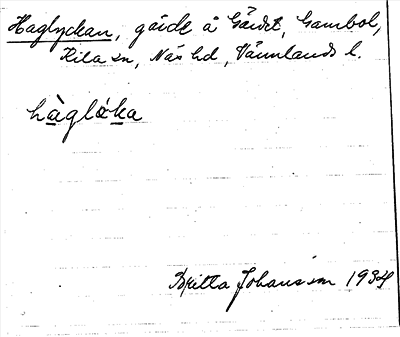 Haglyckan, gärde å Gärdet, Gambol,
Kila sn, Näs hd, Värmlands l.
hàgløka
Britta Johansson 1934